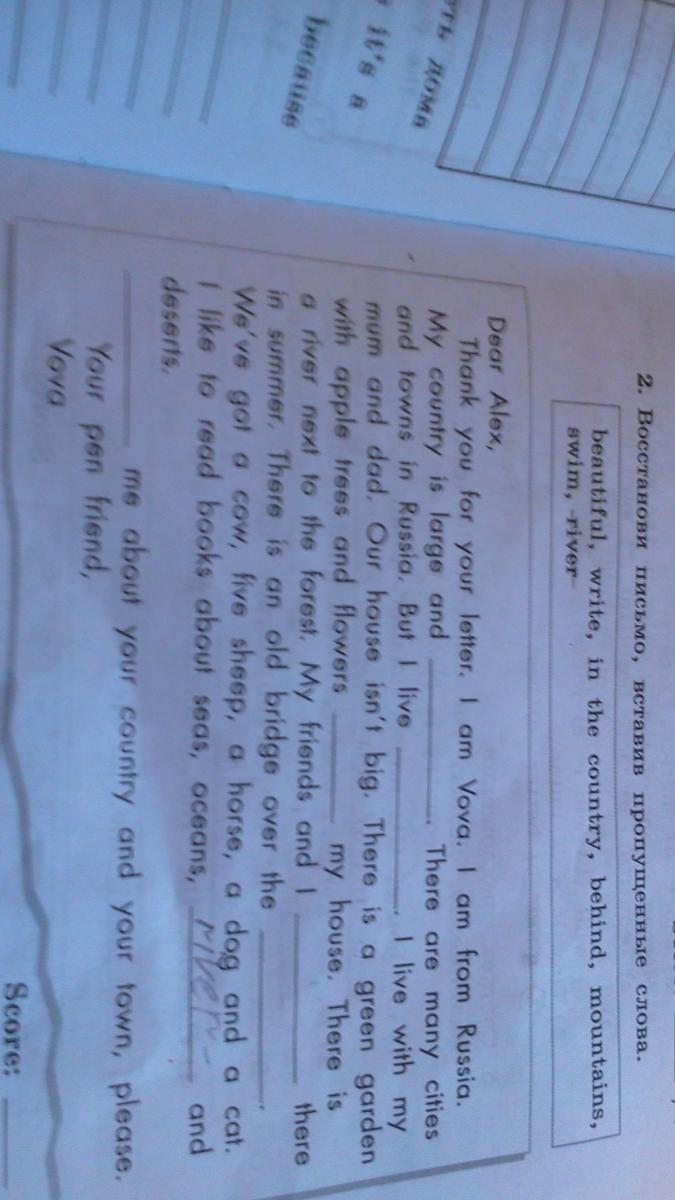 ть дома
it's a
because
2. Восстанови письмо, вставив пропущенные слова.
beautiful, write, in the country, behind, mountains,
swim, river
Dear Alex,
Thank you for your letter. I am Vova. I am from Russia.
My country is large and ________. There are many cities
and towns in Russia. But I live ________. I live with my
mum and dad. Our house isn't big. There is a green garden
with apple trees and flowers ________ my house. There is
a river next to the forest. My friends and I ________ there
in summer. There is an old bridge over the ________.
We've got a cow, five sheep, a horse, a dog and a cat.
I like to read books about seas, oceans, river and
deserts.
________ me about your country and your town, please.
Your pen friend,
Vova
Score: ____